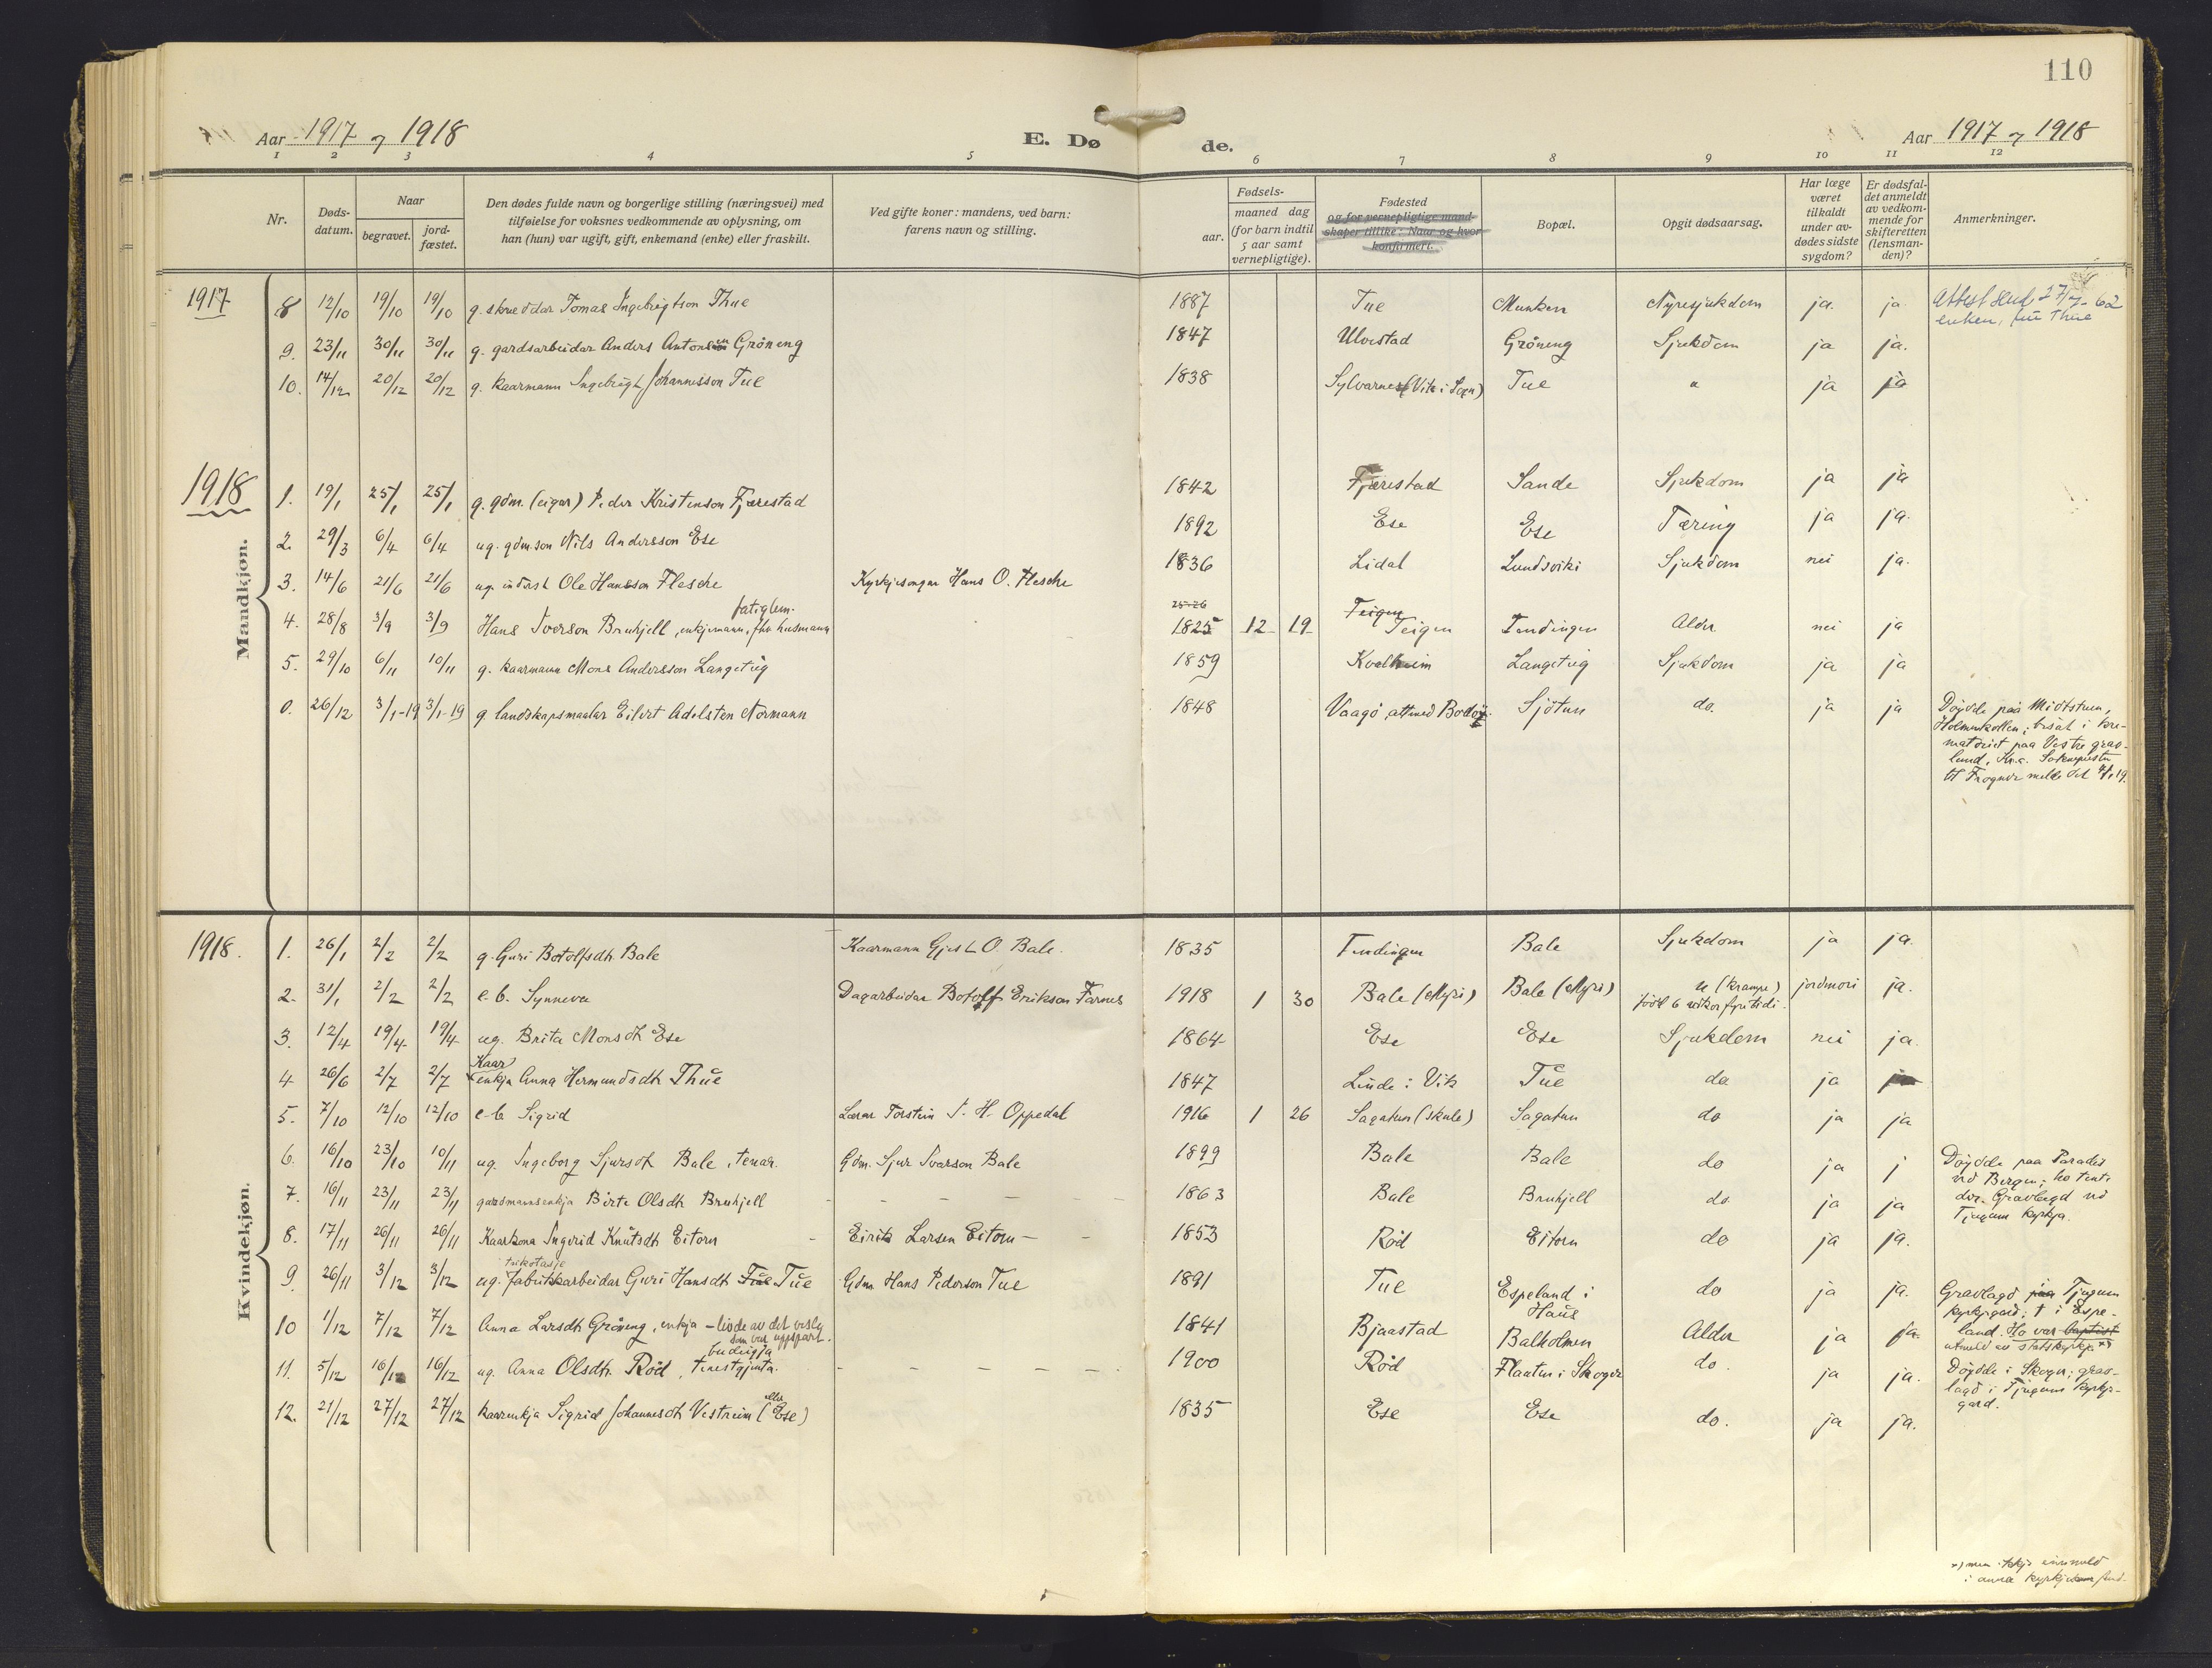 110
Aar 1917 og 1918
E. Dø
de.
Aar 1917 og 1918
1 2 3 4 5 6 7 8 9 10 11 12
Nr.
Døds-
datum.
Naar
begravet.
jord-
fæstet.
Den dødes fulde navn og borgerlige stilling (næringsvei) med
tilføielse for voksnes vedkommende av oplysning, om
han (hun) var ugift, gift, enkemand (enke) eller fraskilt.
Ved gifte koner: mandens, ved barn:
farens navn og stilling.
Fødsels-
aar.
maaned dag
(for barn indtil
5 aar samt
vernepligtige).
Fødested
og for vernepligtige mand-
skaper tillike: Naar og hvor
konfirmert.
Bopæl.
Opgit dødsaarsag.
Har læge
været
tilkaldt
under av-
dødes sidste
sygdom?
Er dødsfal-
det anmeldt
av vedkom-
mende for
skifteretten
(lensman-
den)?
Anmerkninger.
Mandkjøn.
1917
8 12/10 19/10 19/10 g. skreddar Tomas Ingebrigtson Thue 1887 Tue Munken Nyresjukdom ja. ja Attest send 27/7-62
enken, fru Thue
9. 23/11 30/11 30/11 g. gardsarbeidar Anders Antonsen Gröneng 1847 Ulvestad Gröneng Sjukdom ja ja.
10. 14/12 20/12 20/12 g. kaarmann Ingebrigt Johannesson Tue 1838 Sylvarnes (Vik i Sogn) Tue " ja ja
1918
1. 19/1 25/1 25/1 g. gdm. (eigar) Peder Kristenson Fjærestad 1842 Fjærestad Sande Sjukdom ja ja
2. 29/3 6/4 6/4 ug. gdm.son Nils Andersson Ese 1892 Ese Ese Tæring ja ja.
3. 14/6 21/6 21/6 ug. inderst Ole Hansson Flesche Kyrkjesongar Hans O. Flesche 1836 Lidal Lundsviki Sjukdom nei ja.
4. 28/8 3/9 3/9 Hans Iverson Bruhjell, enkjemann, fhv husmann fatiglem. 25-26 1825 12 19 Teigen Teigen Tendingen Alder nei ja
5. 29/10 6/11 10/11 g. kaarmann Mons Andersson Langeteig 1859 Kvalheim Langeteig Sjukdom ja ja
0. 26/12 3/1-19 3/1-19 g. landskapsmaalar Eilert Adelsten Normann 1848 Vaagö attmed Bodö Sjötun do. ja ja Döydde paa Midtstuen,
Holmenkollen; brent i kre-
matoriet paa Vestre grav-
lund, Kr.a. Sokneprestn
til Frogner melde det 4/1 19.
Kvindekjøn.
1918.
1. 26/1 2/2 2/2 g. Guri Botolfsdtr Bale Kaarmann Gjest O. Bale. 1835 Tendingen Bale Sjukdom ja ja.
2. 31/1 2/2 2/2 e.b. Synneva Dagarbeidar Botolf Erikson Farnes 1918 1 30 Bale (Myri) Bale (Myri) " (krampe)
född 6 vikor fyri tidi. jordmori ja.
3. 12/4 19/4 19/4 ug. Brita Monsdtr Ese 1864 Ese Ese Sjukdom nei ja.
4 26/6 2/7 2/7 Kaar enkja Anna Hermundsdtr Thue 1847 Linde i Vik Tue do ja ja
5. 7/10 12/10 12/10 e.b. Sigrid Lærar Torstein T. H. Oppedal 1916 1 26 Sagatun (skule) Sagatun do ja ja
6. 16/10 23/10 10/11 ug. Ingeborg Sjursdtr Bale, tenar. Gdm. Sjur Ivarson Bale 1899 Bale Bale do ja j Döydde paa Paradis
ved Bergen; ho tente
der. Gravlagd ved
Tjugum kyrkja.
7. 16/11 23/11 23/11 gardmannsenkja Birte Olsdtr Bruhjell 1863 Bale Bruhjell do ja ja
8. 17/11 26/11 26/11 Kaarkona Ingerid Knutsdtr Eitorn Eirik Larsen Eitorn 1853 Röd Eitorn do ja ja.
9 26/11 3/12 3/12 ug. trikotasje fabrikkarbeidar Guri Hansdtr Tue Tue Gdm. Hans Pederson Tue 1891 Tue Espeland i
Haus do ja ja. Gravlagd paa Tjugum
kyrkjegard; † i Espe-
land. Ho var baptist
utmeld av statskyrkja x)
10 1/12 7/12 7/12 Anna Larsdtr Gröneng, enkja - livde av det vesle
som var uppspart. 1841 Bjaastad Balholmen Alder ja ja.
11. 5/12 16/12 16/12 ug. Anna Olsdtr. Röd, budeigja tenestgjenta. 1900 Röd Flaaten i Skoger do. ja ja. Döydde i Skoger; grav-
lagd i Tjugum kyrkje-
gard.
12. 21/12 27/12 27/12 kaarenkja Sigrid Johannesdtr Vestreim (eller Ese) 1835 Ese Ese do. ja ja.
x) men ikkje innmeld
i anna kyrkjesamfund.